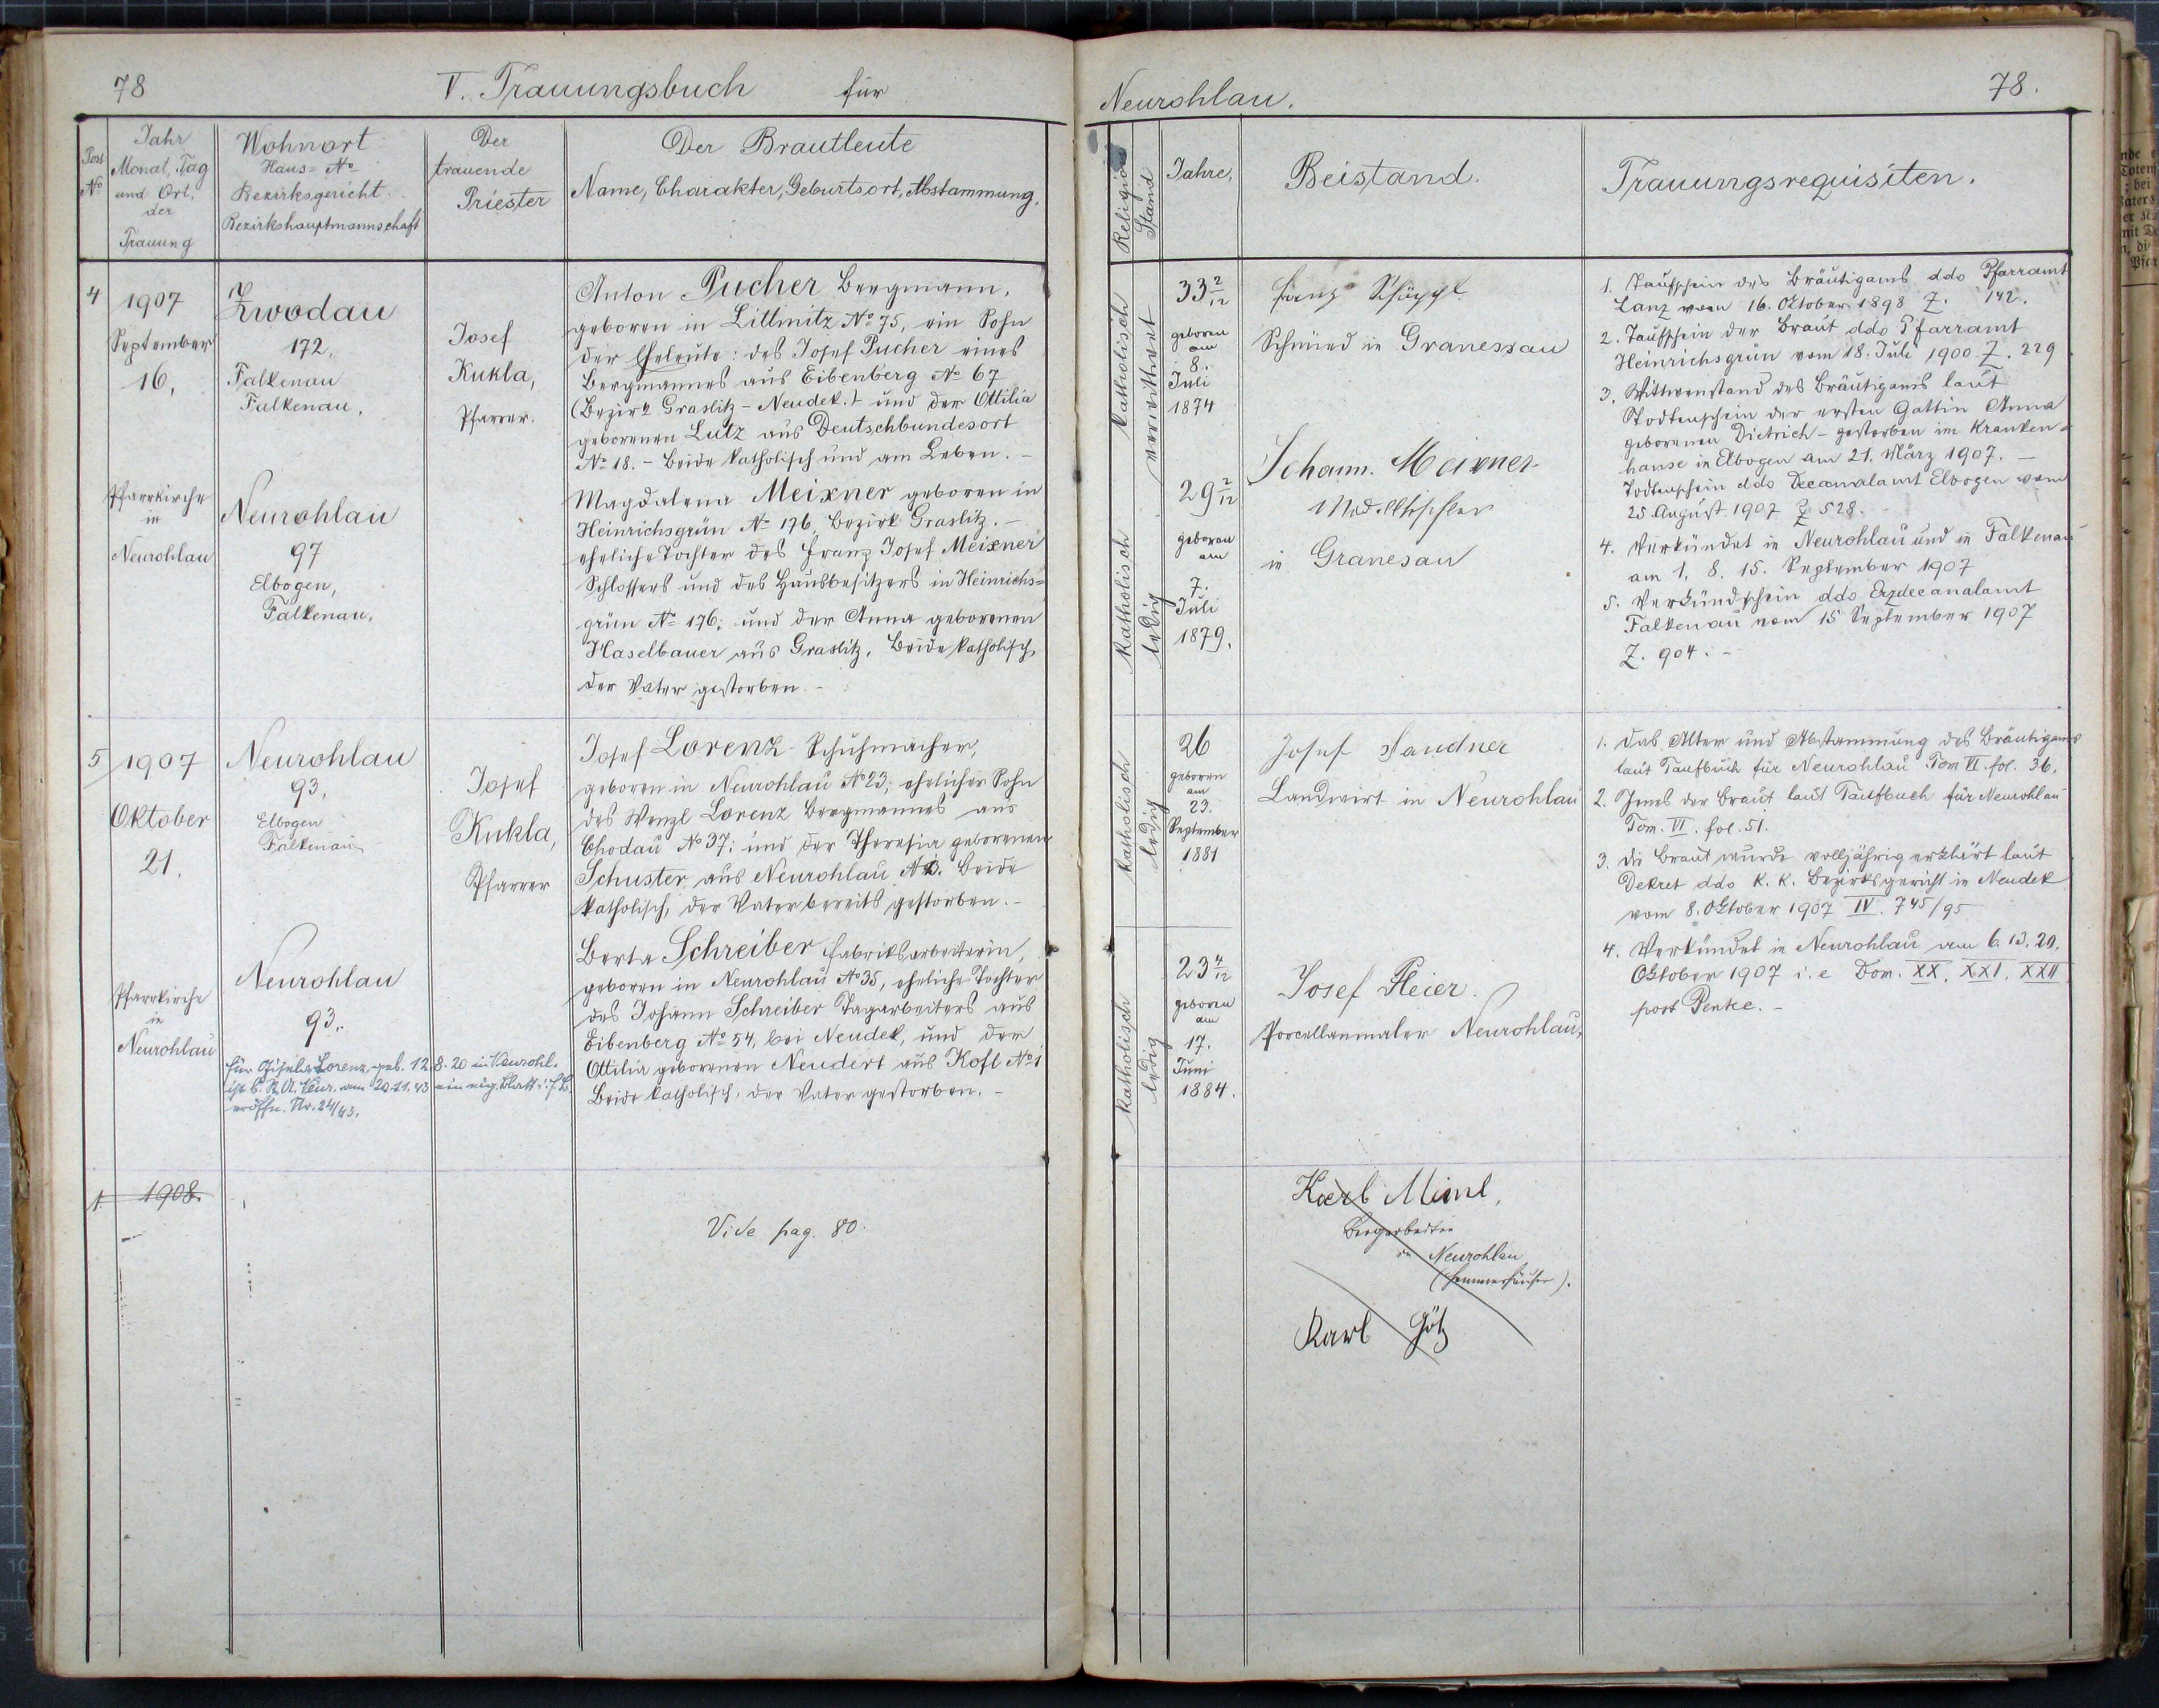 78
V. Trauungsbuch für
Post No
Jahr
Monat, Tag
und Ort,
der
Trauung
Wohnort
Haus= No
Bezirksgericht
Bezirkshauptmannschaft
Der
trauende
Priester
Der Brautleute
Name, Charakter, Geburtsort, Abstammung.
4
1907
September
16,
Pfarrkirche
in
Neurohlau
Zwodau
172,
Falkenau
Falkenau,
Neurohlau
97
Elbogen,
Falkenau,
Josef
Kukla,
Pfarrer.
Anton Pucher Bergmann,
geboren in Littmitz No 75, ein Sohn
der Eheleute: des Josef Pucher eines
Bergmannes aus Eibenberg No 67
(Bezirk Graslitz - Neudek.) und der Ottilia
geborenen Lutz aus Deutschbundesort
No 18. - Beide katholisch und am Leben. -
Magdalena Meixner geboren in
Heinrichsgrün No 176, Bezirk Graslitz. -
eheliche Tochter des Franz Josef Meixner
Schlossers und des Hausbesitzers in Heinrichs=
grün No 176; und der Anna geborenen
Haselbauer aus Graslitz, Beide katholisch,
der Vater gestorben. -
5
1907
Oktober
21.
Pfarrkirche
in
Neurohlau
Neurohlau
93,
Elbogen
Falkenau
Neurohlau
93.
für Gisela Lorenz, geb. 12.8.20 in Neurohl.
ist b. St. A. Neur. am 20.11.43 ein eig. Blatt i. F. B.
eröffn. Nr. 24/43.
Josef
Kukla,
Pfarrer
Josef Lorenz Schuhmacher,
geboren in Neurohlau No 23; ehelicher Sohn
des Wenzl Lorenz Bergmannes aus
Chodau No 37; und der Theresia geborenen
Schuster aus Neurohlau Beide
katholisch, der Vater bereits gestorben. -
Berta Schreiber Fabriksarbeiterin,
geboren in Neurohlau No 35, eheliche Tochter
des Johann Schreiber Tagarbeiters aus
Eibenberg No 54, bei Neudek, und der
Ottilia geborenen Neudert aus Kofl No 1
Beide katholisch, der Vater gestorben. -
1 1908.
Vide pag. 80.
Neurohlau.
78.
Religion
Stand
Jahre,
Beistand.
Trauungsrequisiten.
katholisch
verwittwet
33 2/12
geboren
am
8.
Juli
1874
katholisch
ledig
29 2/12
geboren
am
7.
Juli
1879.
Franz
Schmied in Granessau
Johann. Meixner
Modelltischler
in Granesau
1. Taufschein des Bräutigams ddo Pfarramt
Lanz vom 16. Oktober 1898 Z. 142.
2. Taufschein der Braut ddo Pfarramt
Heinrichsgrün vom 18. Juli 1900 Z. 229
3. Wittwenstand des Bräutigams laut
Todtenschein der ersten Gattin Anna
geborenen Dietrich - gestorben im Kranken=
hause in Elbogen am 21. März 1907. -
Todtenschein ddo Decanalamt Elbogen vom
25. August 1907 Z. 528.
4. Verkündet in Neurohlau und in Falkenau
am 1, 8. 15. September 1907
5. Verkündschein ddo Erzdecanalamt
Falkenau vom 15 September 1907
Z. 904. -
katholisch
ledig
26
geboren
am
23.
September
1881
katholisch
ledig
23 4/12
geboren
am
17.
Juni
1884.
Josef Sandner
Landwirt in Neurohlau
Josef Pleier.
Porcellanmaler Neurohlau,
1. Das Alter und Abstammung des Bräutigams
laut Taufbuch für Neurohlau Tom VI. fol. 36.
2. Jenes der Braut laut Taufbuch für Neurohlau
Tom. VI. fol. 51.
3. Die Braut wurde volljährig erklärt laut
Dekret ddo K. K. Bezirksgericht in Neudek
vom 8. Oktober 1907 IV. 745/95
4. Verkündet in Neurohlau am 6. 13. 20.
Oktober 1907 i. e Dom. XX. XXI. XXII
post Pentec. -
Karl Miml,
Bergarbeiter
in Neurohlau
Karl Götz